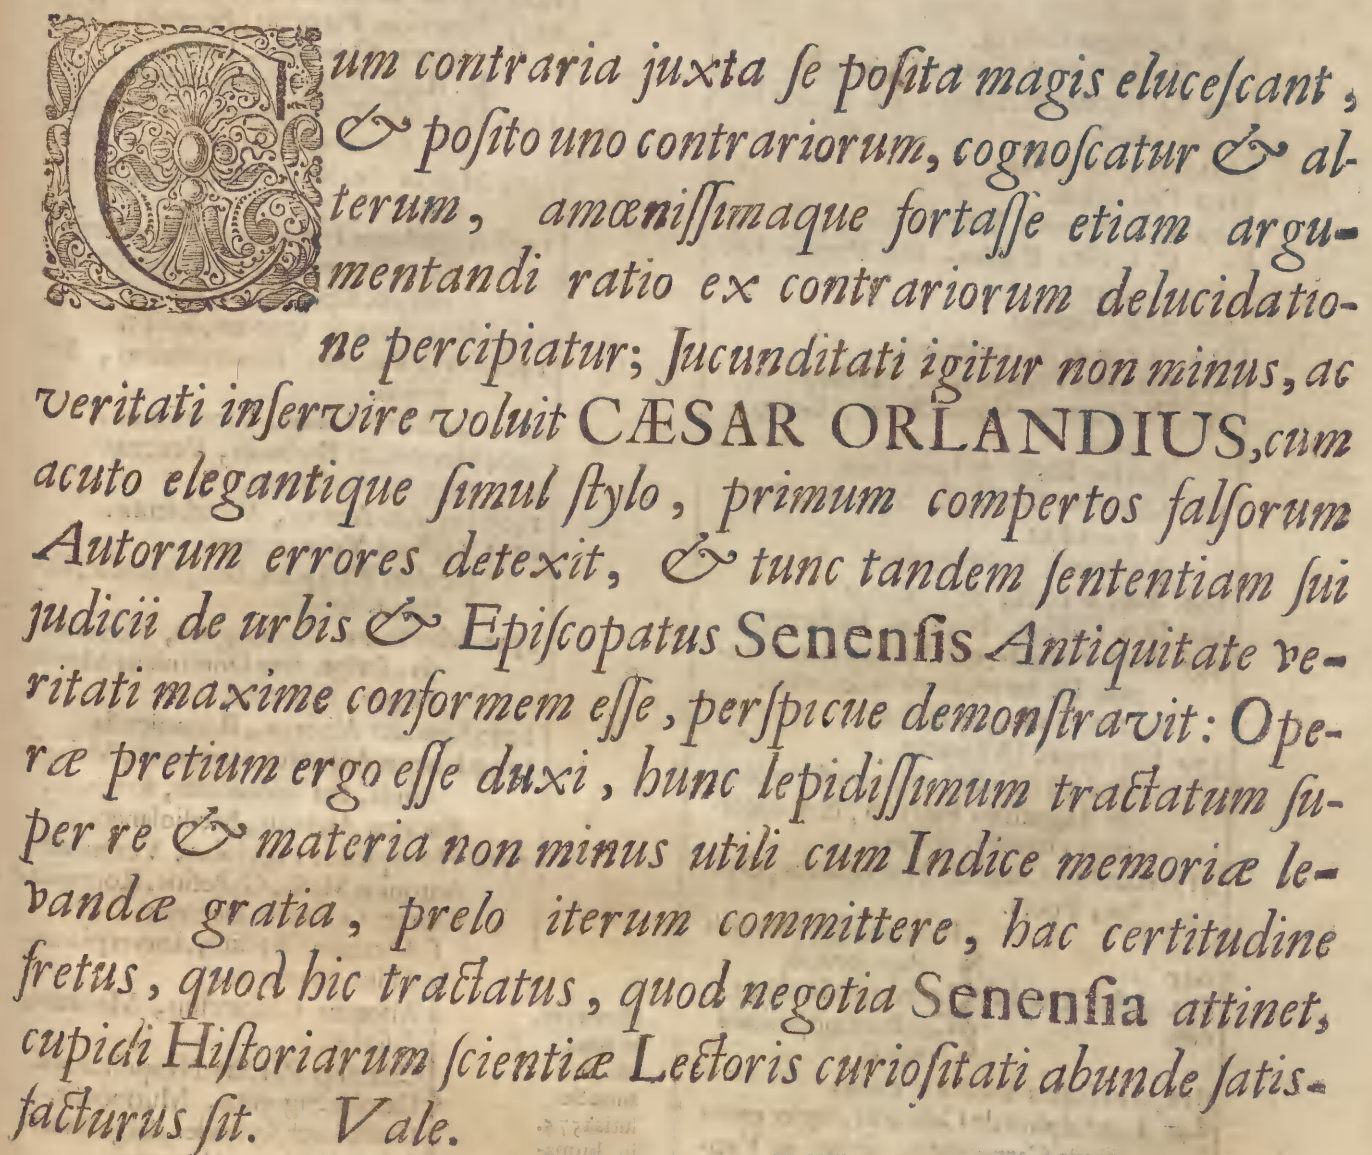 Cum contraria juxta ſe poſita magis eluceſcant,
& poſito uno contrariorum, cognoſcatur & al-
terum, amœniſſimaque fortaſſe etiam argu-
mentandi ratio ex contrariorum delucidatio-
ne percipiatur; Jucunditati igitur non minus, ac
veritati inſervire voluit CÆSAR ORLANDIUS, cum
acuto elegantique ſimul ſtylo, primum compertos falſorum
Autorum errores detexit, & tunc tandem ſententiam ſui
judicii de urbis & Epiſcopatus Senenſis Antiquitate ve-
ritati maxime conformem eſſe, perſpicue demonſtravit: Ope-
ræ pretium ergo eſſe duxi, hunc lepidiſſimum tractatum ſu-
per re & materia non minus utili cum Indice memoriæ le-
vandæ gratia, prelo iterum committere, hac certitudine
fretus, quod hic tractatus, quod negotia Senenſia attinet,
cupidi Hiſtoriarum ſcientiæ Lectoris curioſitati abunde ſatis-
facturus ſit. Vale.